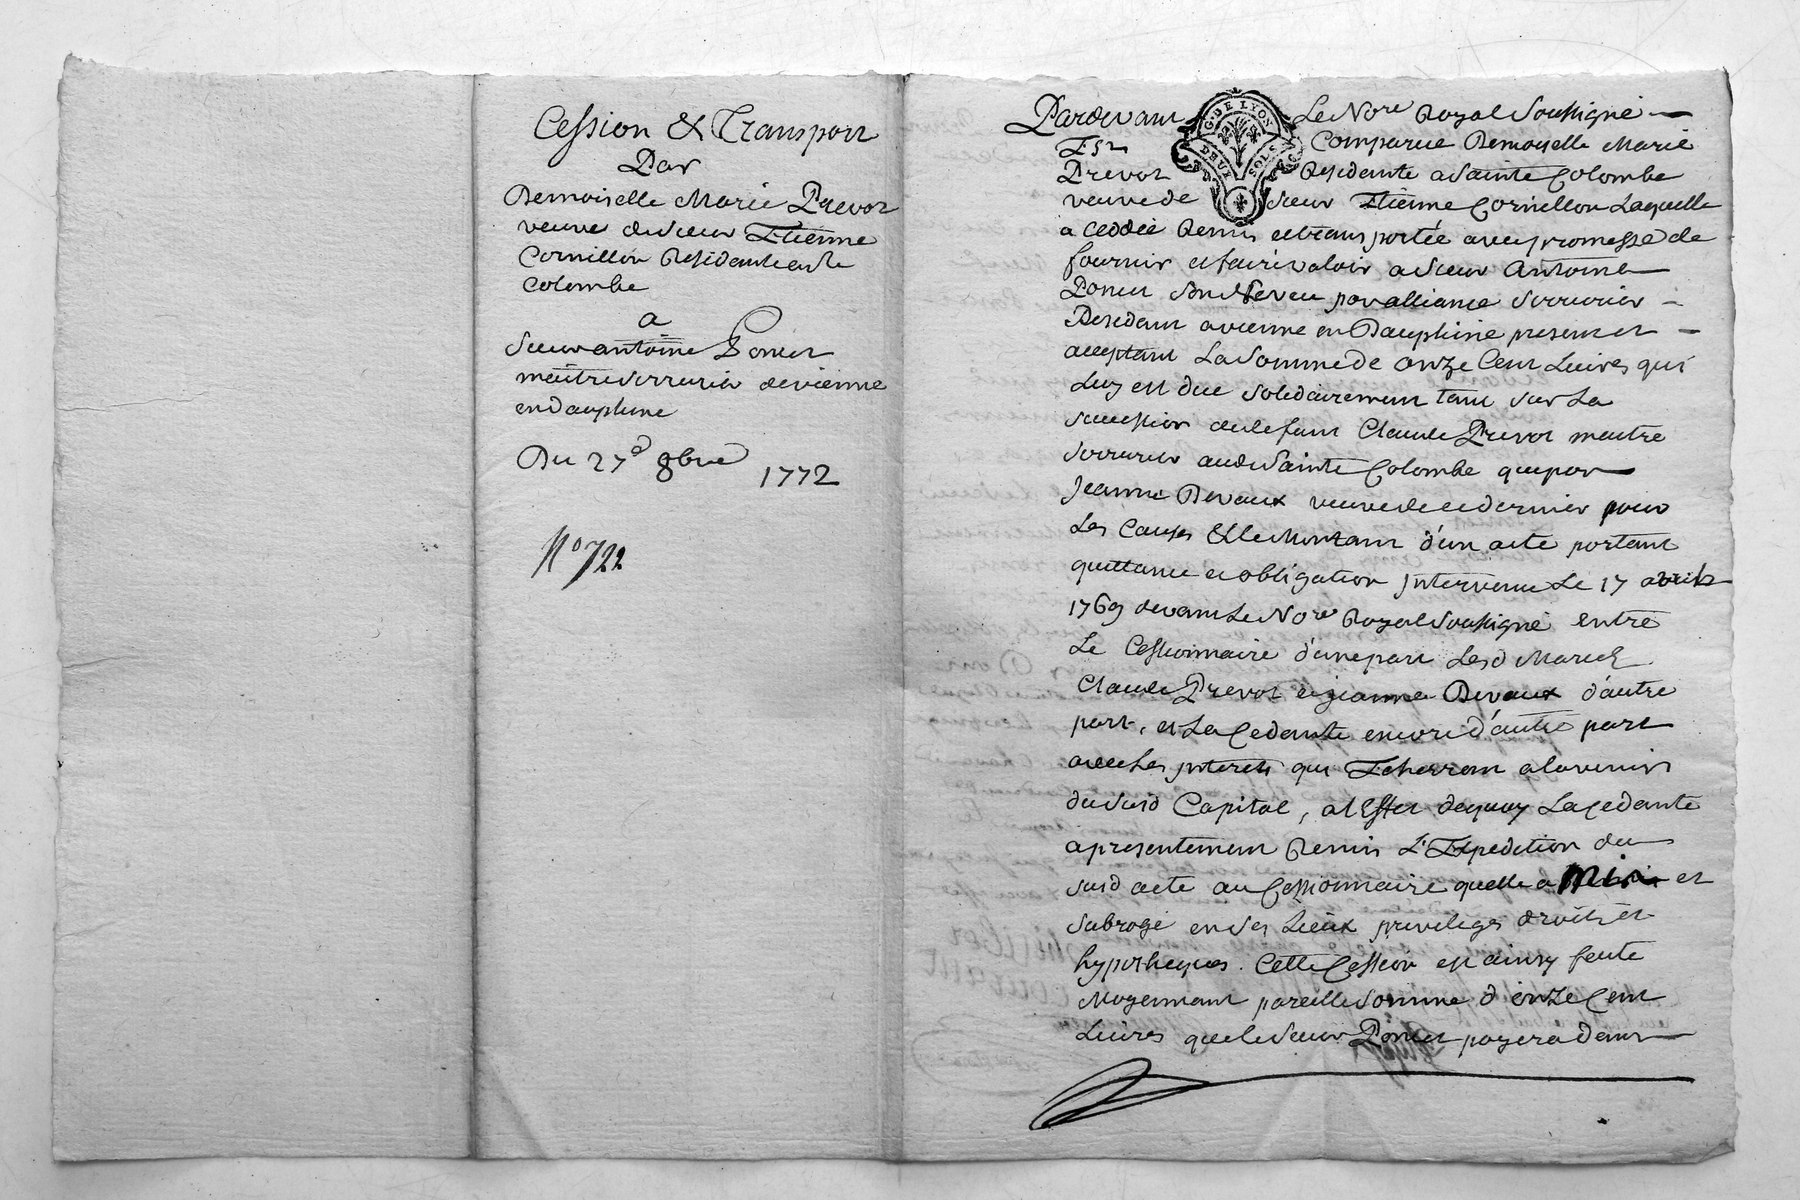 Cession & Transport
Par
Demoiselle Marie Prevot
veuve du sieur Etienne
Cornillon Residante a ste
Colombe
a
Sieur antoine Poncet
maitre serrurier de vienne
en dauphine
Du 27e 8bre 1772
No 722
Pardevant Le Nore Royal Soussigné
Est Comparue Demoiselle Marie
Prevot Residante a Sainte Colombe
veuve de sieur Etienne Cornillon Laquelle
a Ceddée Remis et transportée avec promesse de
fournir et faire valoir a sieur Antoine
Poncet Son Neveu par alliance serrurier
Residant a vienne en Dauphine present et
acceptant La Somme de onze Cent Livres qui
Luy est due solidairement tant sur La
succession de defunt Claude Prevot maitre
serrurier audit Sainte Colombe que par
Jeanne Devaux veuve de ce dernier pour
Les Causes & Le Montant d'un acte portant
quittance et obligation intervenue Le 17 avril
1769 devant Le Nore Royal Soussigné entre
Le Cessionnaire d'une part Lesd Mariés
Claude Prevot et jeanne Devaux d'autre
part, et La Cedante encore d'autre part
avec Les interets qui Echerront a l'avenir
du susd Capital, a l'Effet de quoy La Cedante
a presentement Remis L'Expedition du
susd acte au Cessionnaire quelle a mis et
subrogé en ses Lieux privileges droits et
hypotheques. Cette Cession est ainsy faite
Moyennant pareille Somme d'onze Cent
Livres que le sieur Poncet payera dans
G. DE LYON
DEUX SOLS